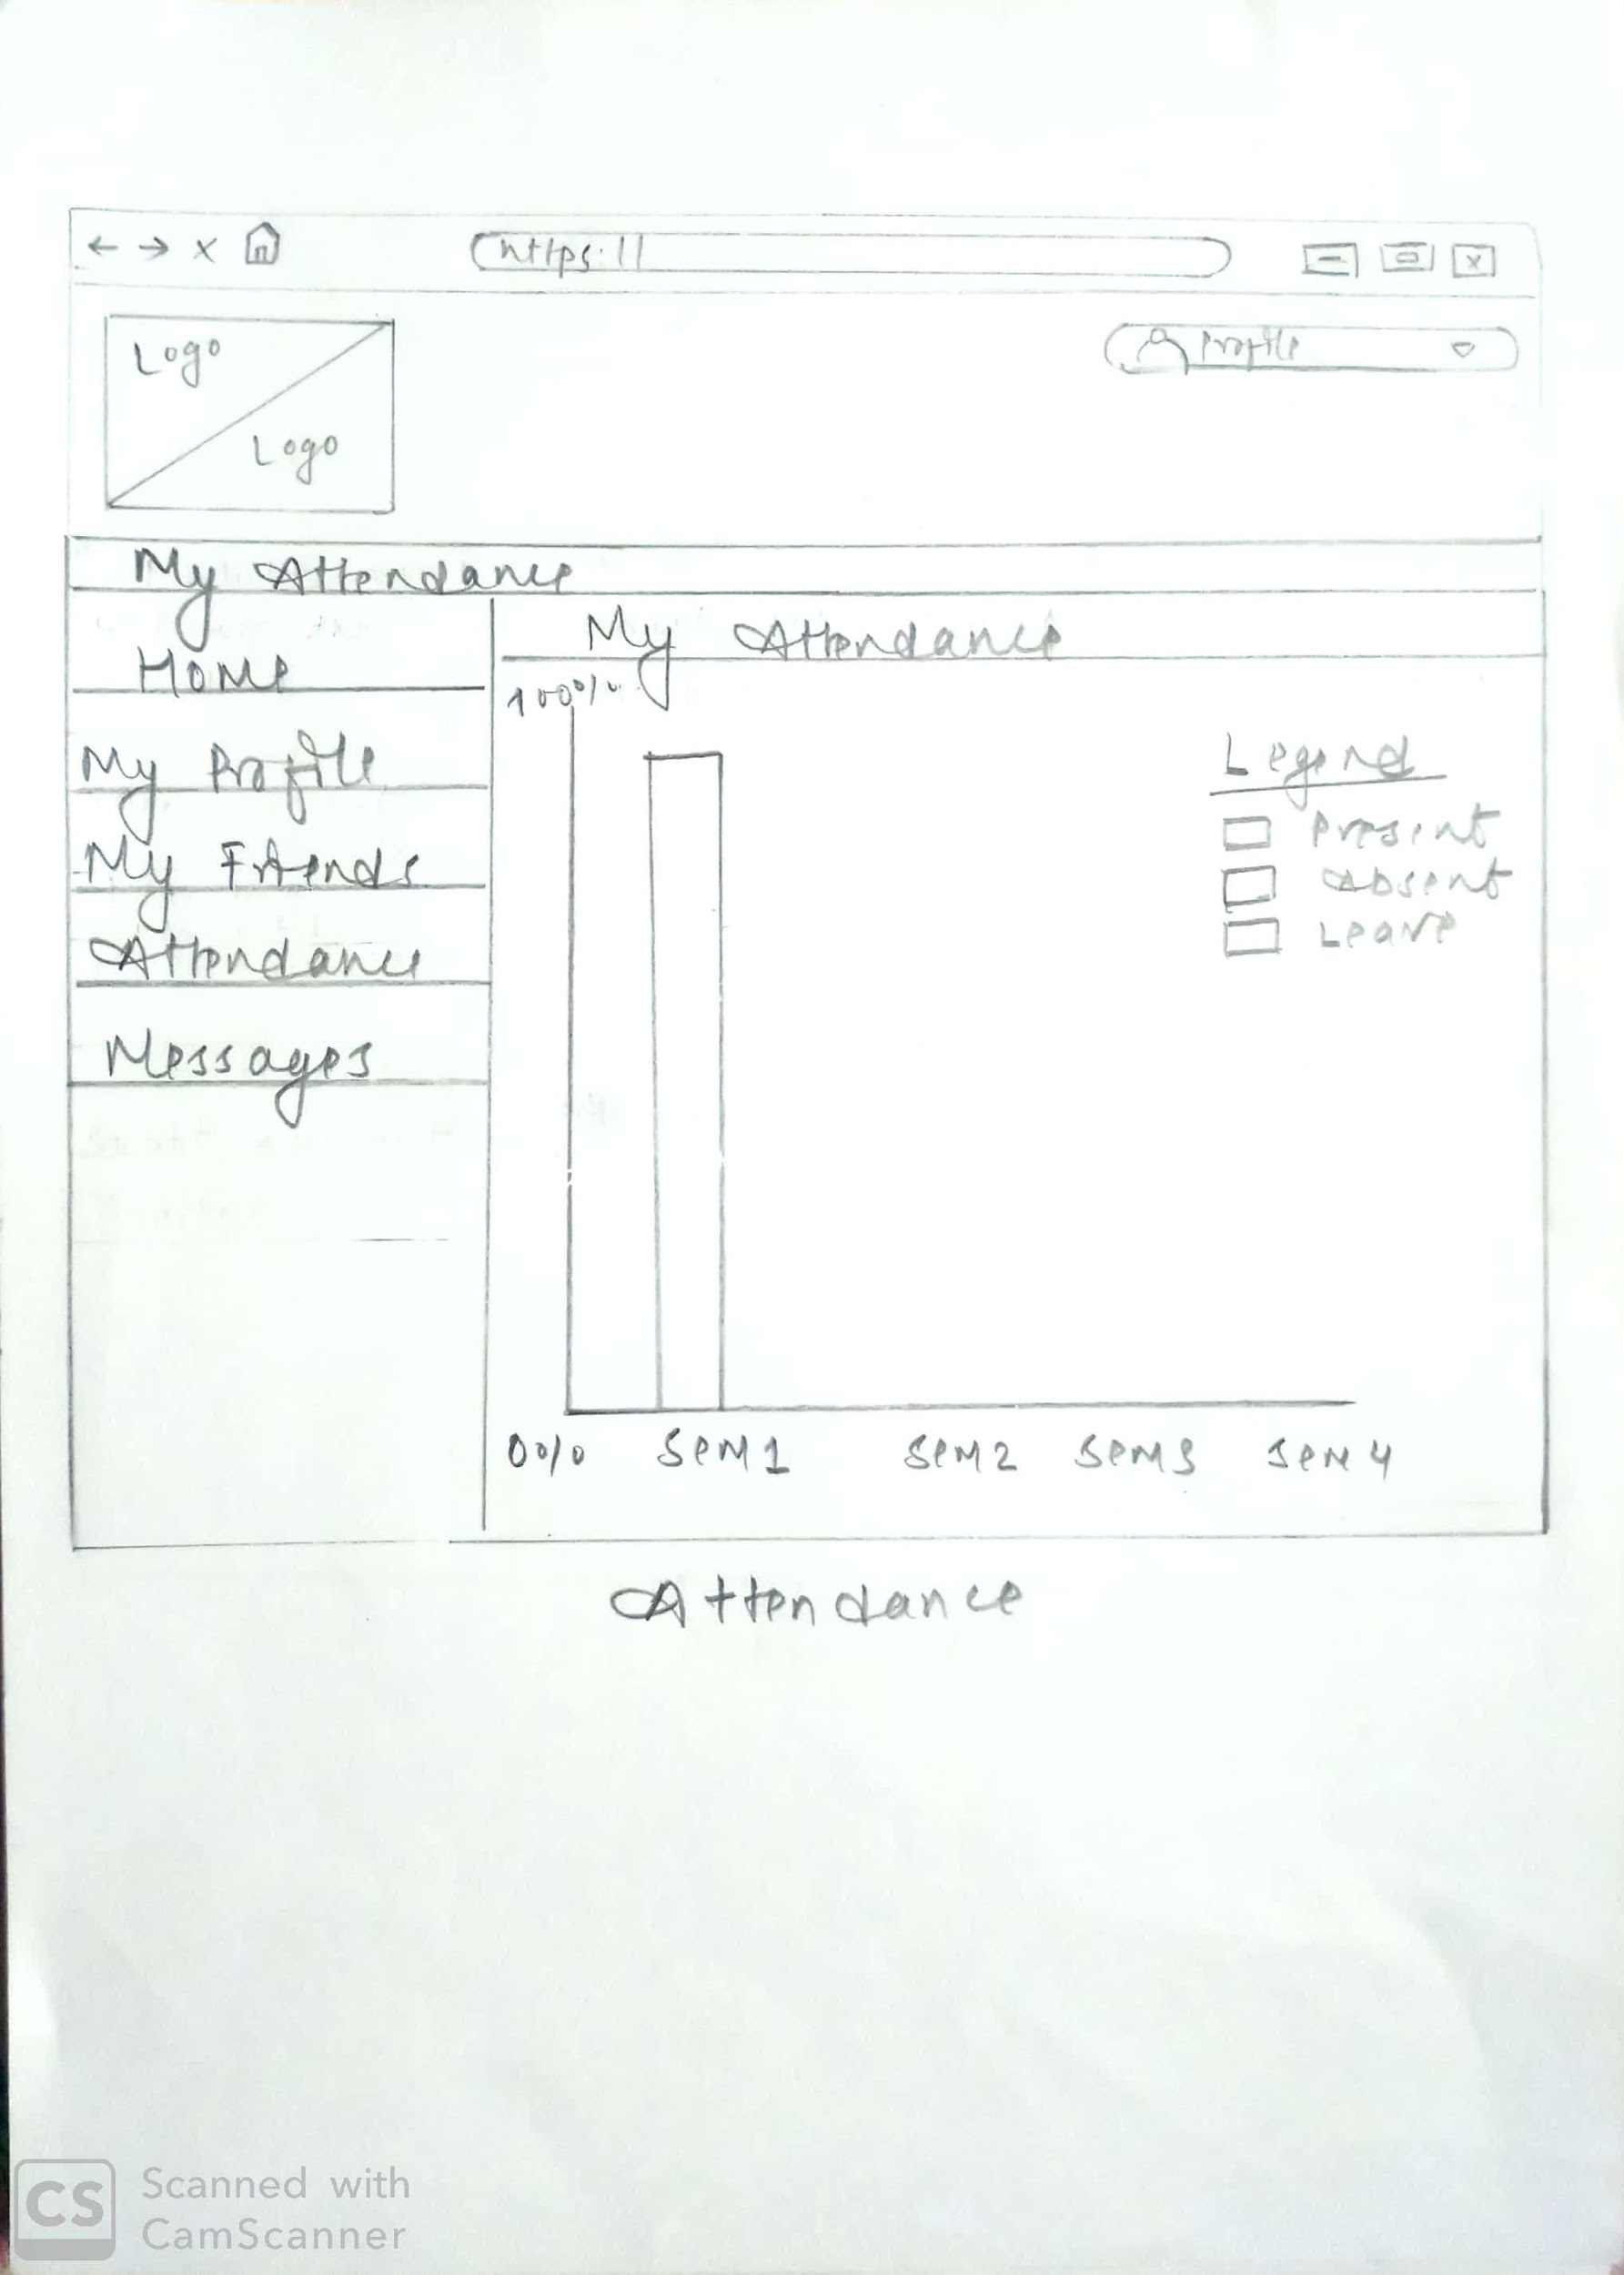 https://
Logo
Logo
Profile
My Attendance
Home
My Profile
My Friends
Attendance
Messages
My Attendance
100%
Legend
Present
Absent
Leave
0% Sem1 Sem2 Sem3 Sem4
Attendance
CS
Scanned with
CamScanner